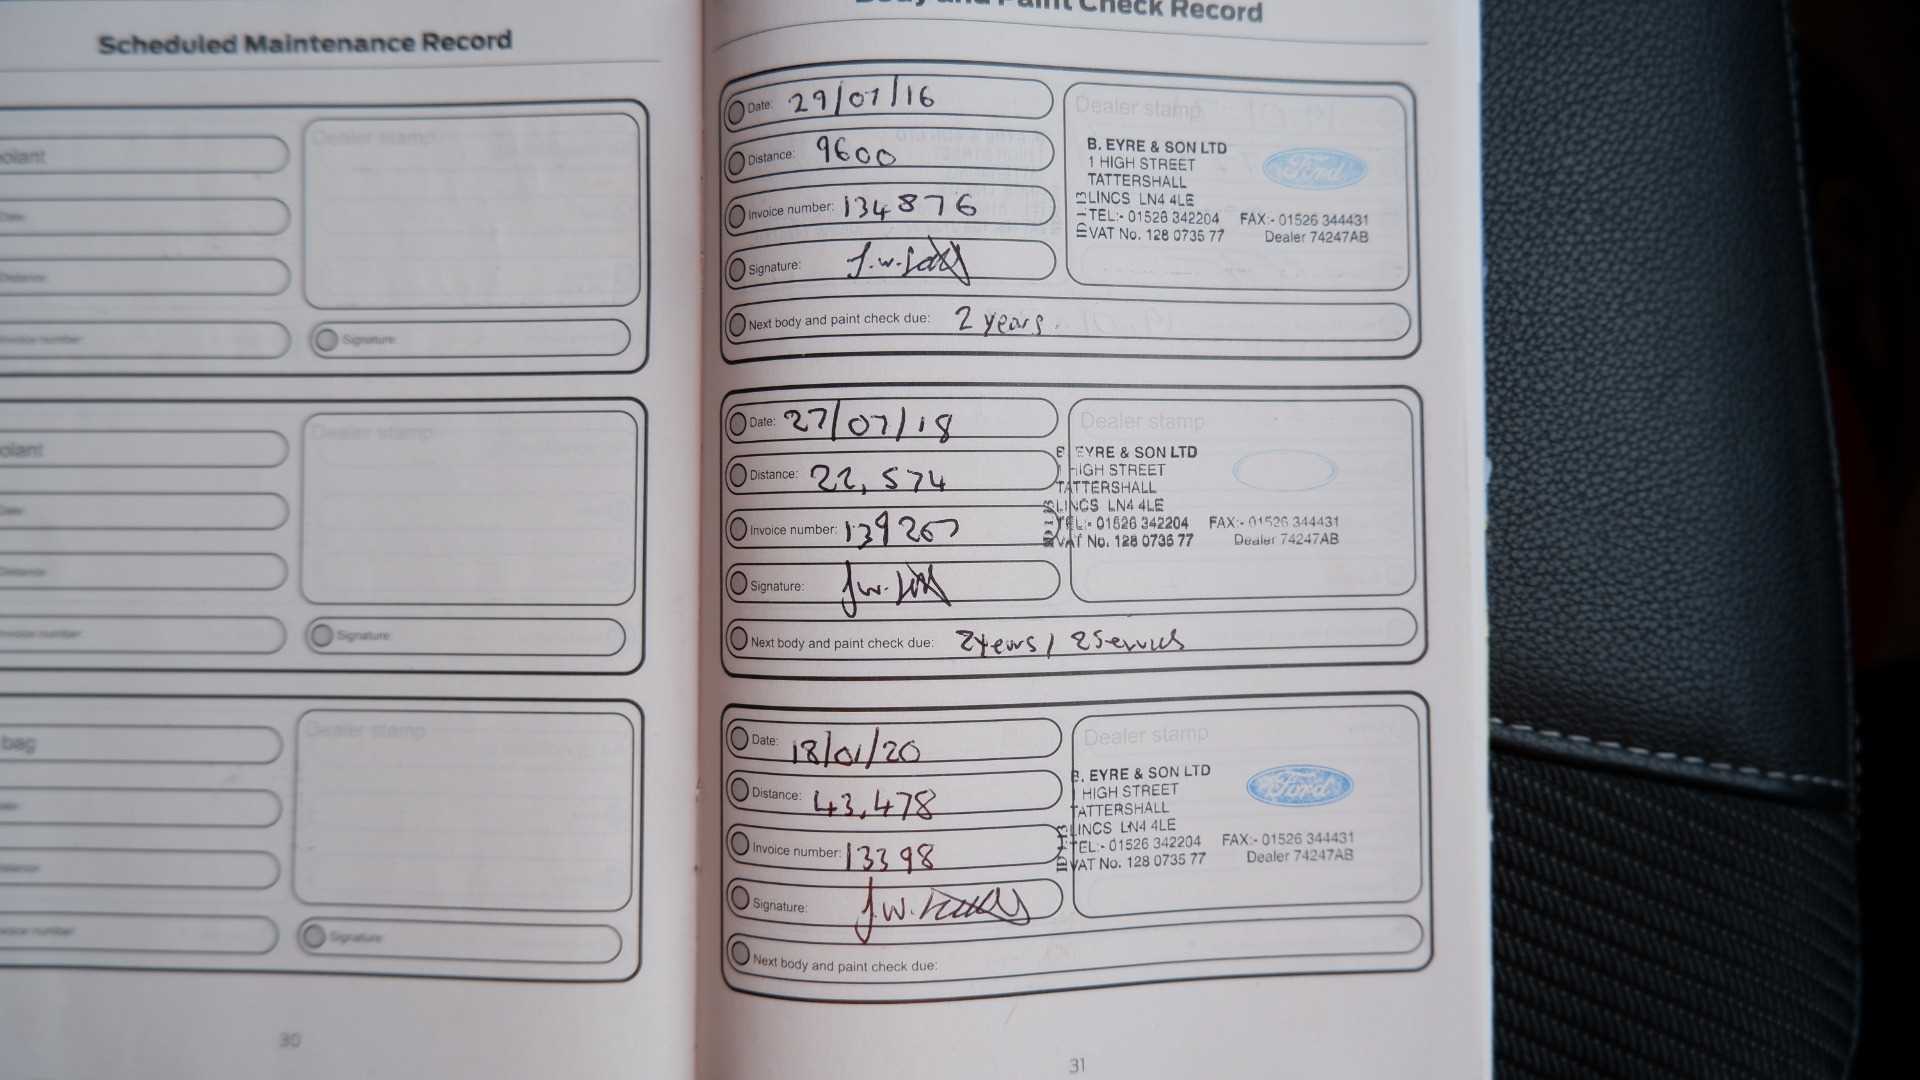 Scheduled Maintenance Record
Dealer stamp
olant
Date:
Distance:
Invoice number:
Signature:
Dealer stamp
olant
Date:
Distance:
Invoice number:
Signature:
Dealer stamp
bag
Invoice number:
Signature:
30
Body and Paint Check Record
Date: 29/07/16
Distance: 9600
Invoice number: 134876
Signature:
Dealer stamp
B. EYRE & SON LTD
1 HIGH STREET
TATTERSHALL
LINCS LN4 4LE
TEL:- 01526 342204 FAX:- 01526 344431
VAT No. 128 0735 77 Dealer 74247AB
Ford
Next body and paint check due: 2 years.
Date: 27/07/18
Distance: 22,574
Invoice number: 139267
Signature:
Dealer stamp
B. EYRE & SON LTD
HIGH STREET
TATTERSHALL
LINCS LN4 4LE
TEL:- 01526 342204 FAX:- 01526 344431
VAT No. 128 0735 77 Dealer 74247AB
Next body and paint check due: 2 years / 2 Services
Date: 18/01/20
Distance: 43,478
Invoice number: 13398
Signature:
Dealer stamp
B. EYRE & SON LTD
HIGH STREET
TATTERSHALL
LINCS LN4 4LE
TEL:- 01526 342204 FAX:- 01526 344431
VAT No. 128 0735 77 Dealer 74247AB
Ford
Next body and paint check due:
31